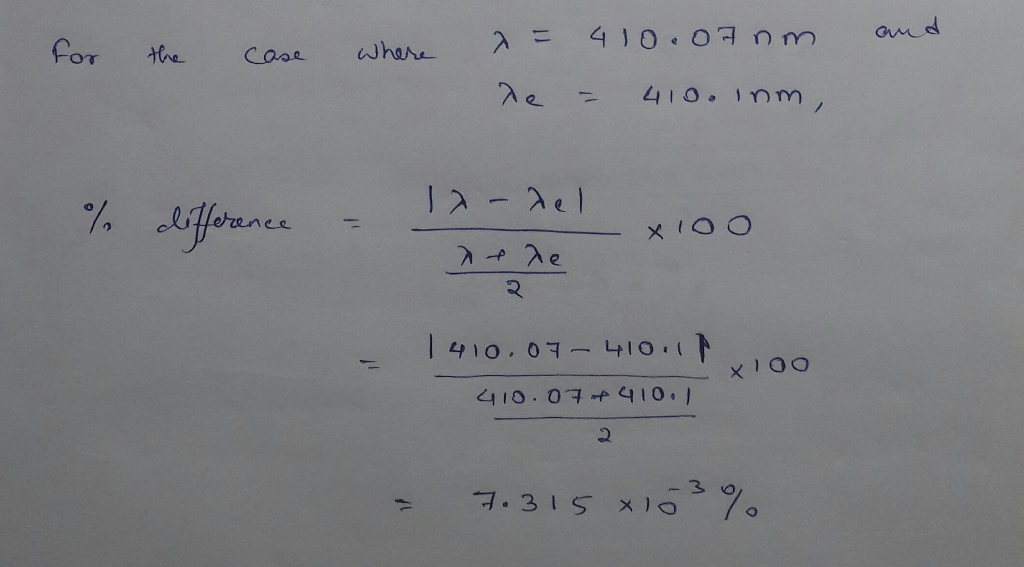 for the case where λ = 410.07nm and
λe = 410.1nm,
% difference = |λ - λe| / ((λ + λe) / 2) × 100
= |410.07 - 410.1| / ((410.07 + 410.1) / 2) × 100
= 7.315 × 10⁻³ %